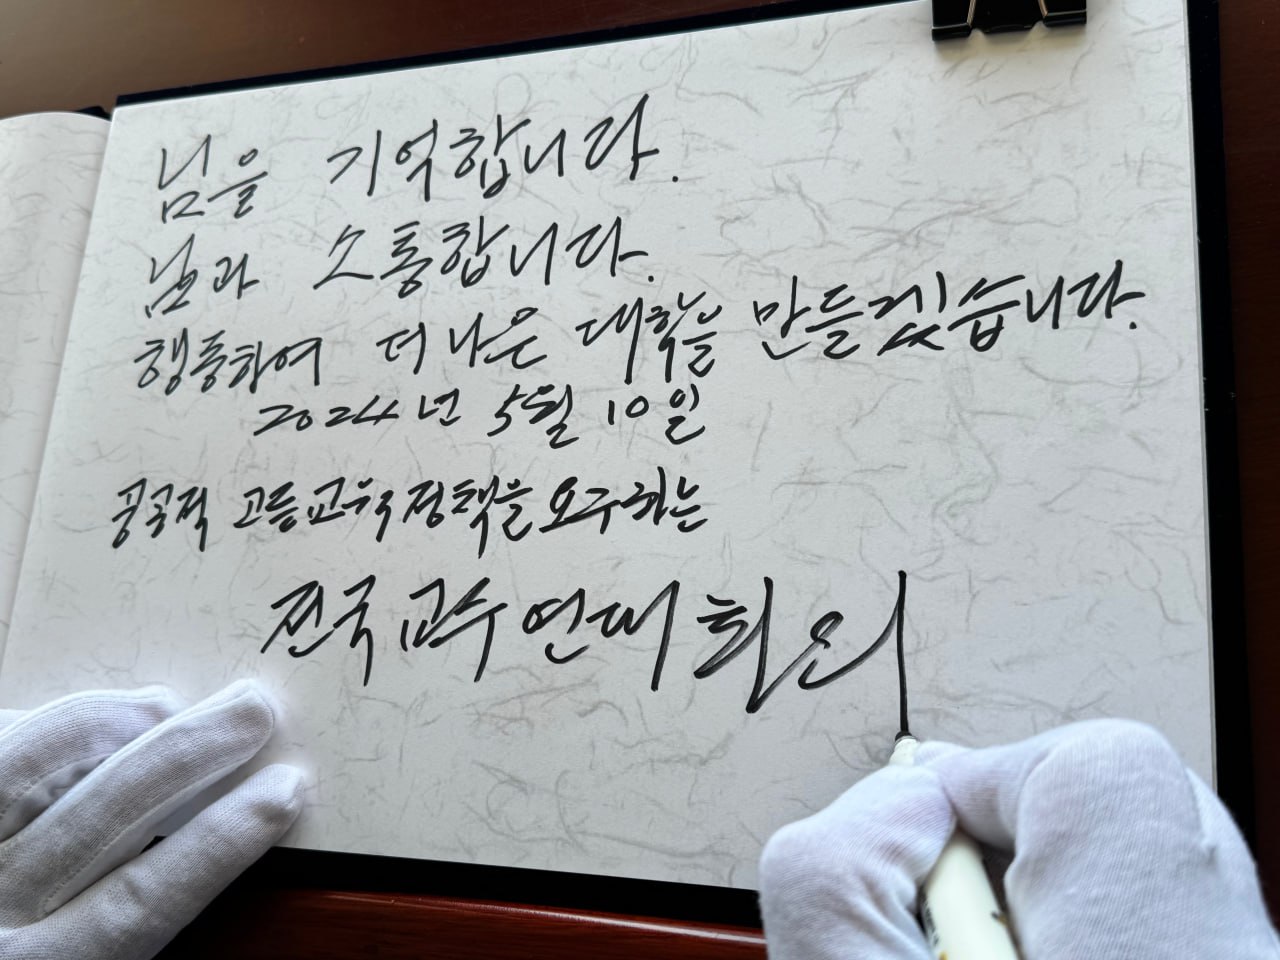 님을 기억합니다.
님과 소통합니다.
행동하여 더 나은 대학을 만들겠습니다.
2024년 5월 10일
공공적 고등교육정책을요구하는
전국교수연대회의